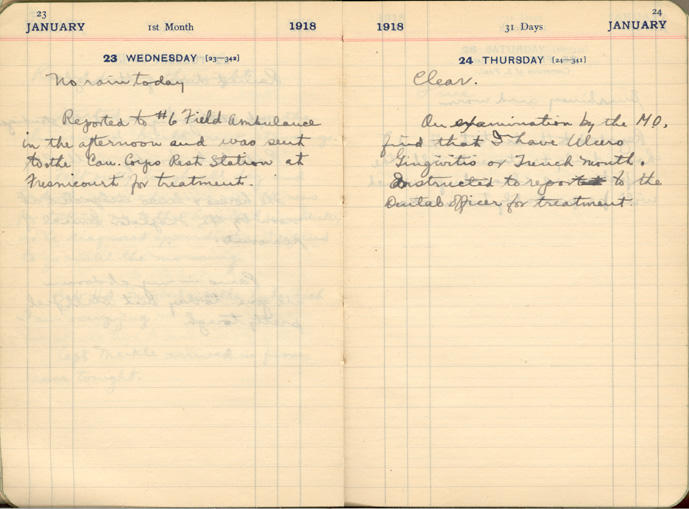 23
JANUARY 1st Month 1918
23 WEDNESDAY [23-342]
No rain today
Reported to #6 Field Ambulance
in the afternoon and was sent
to the Can. Corps Rest Station at
Fresnicourt for treatment.
24
1918 31 Days JANUARY
24 THURSDAY [24-341]
Clear.
On examination by the M.O.
find that I have Ulcero
Gingivitis or Trench Mouth.
Instructed to report to the
Dental Officer for treatment.